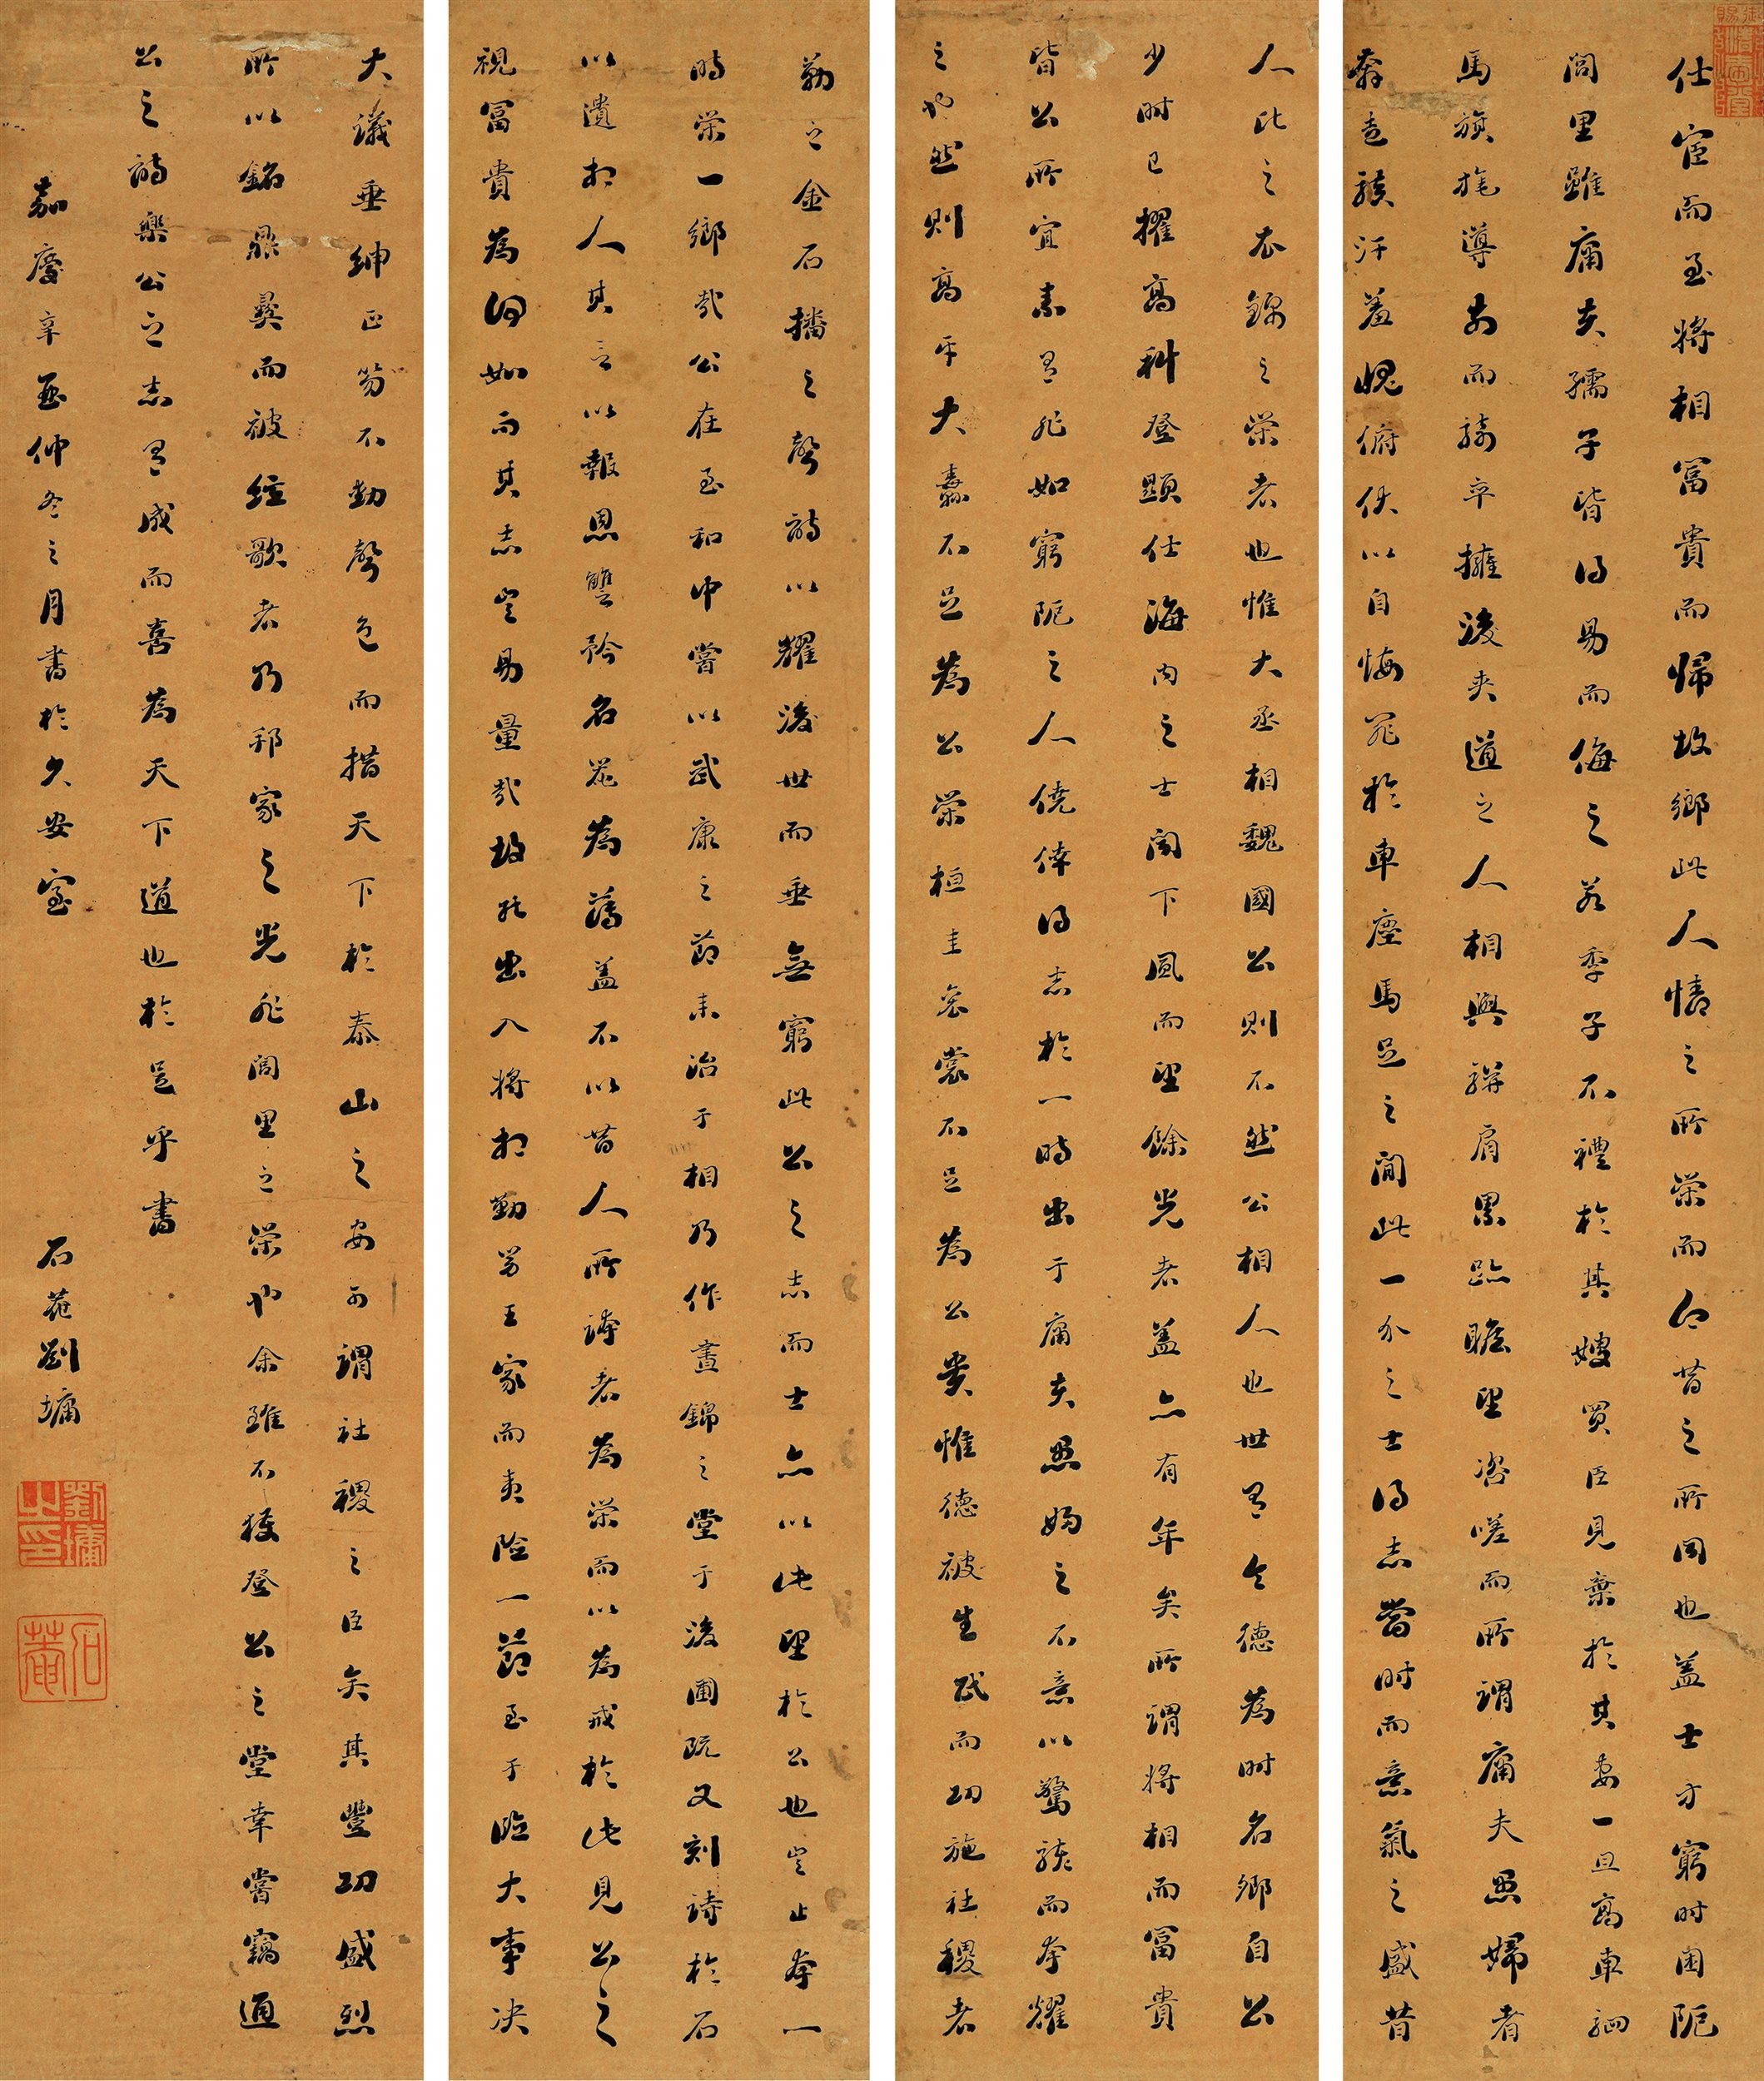 御賜清愛堂
仕宦而至將相富貴而歸故鄉此人情之所榮而今昔之所同也蓋士方窮時困阨
閭里雖庸夫孺子皆得易而侮之若季子不禮於其嫂買臣見棄於其妻一旦高車駟
馬旗旄導前而騎卒擁後夾道之人相與駢肩累跡瞻望咨嗟而所謂庸夫愚婦者
奔走駭汗羞愧俯伏以自悔罪於車塵馬足之間此一介之士得志當時而意氣之盛昔
人比之衣錦之榮者也惟大丞相魏國公則不然公相人也世有令德為時名卿自公
少時已擢高科登顯仕海內之士聞下風而望餘光者蓋亦有年矣所謂將相而富貴
皆公所宜素有非如窮阨之人僥倖得志於一時出于庸夫愚婦之不意以驚駭而夸耀
之也然則高牙大纛不足為公榮桓圭袞裳不足為公貴惟德被生民而功施社稷者
勒之金石播之聲詩以耀後世而垂無窮此公之志而士亦以此望於公也豈止夸一
時榮一鄉哉公在至和中嘗以武康之節來治于相乃作晝錦之堂于後圃既又刻詩於石
以遺相人其言以報恩讐矜名譽為薄蓋不以昔人所誇者為榮而以為戒於此見公之
視富貴為何如而其志豈易量哉故能出入將相勤勞王家而夷險一節至于臨大事決
大議垂紳正笏不動聲色而措天下於泰山之安可謂社稷之臣矣其豐功盛烈
所以銘鼎彝而被絃歌者乃邦家之光非閭里之榮也余雖不獲登公之堂幸嘗竊通
公之詩樂公之志有成而喜為天下道也於是乎書
嘉慶辛酉仲冬之月書於久安室 石菴劉墉
劉墉之印
石菴